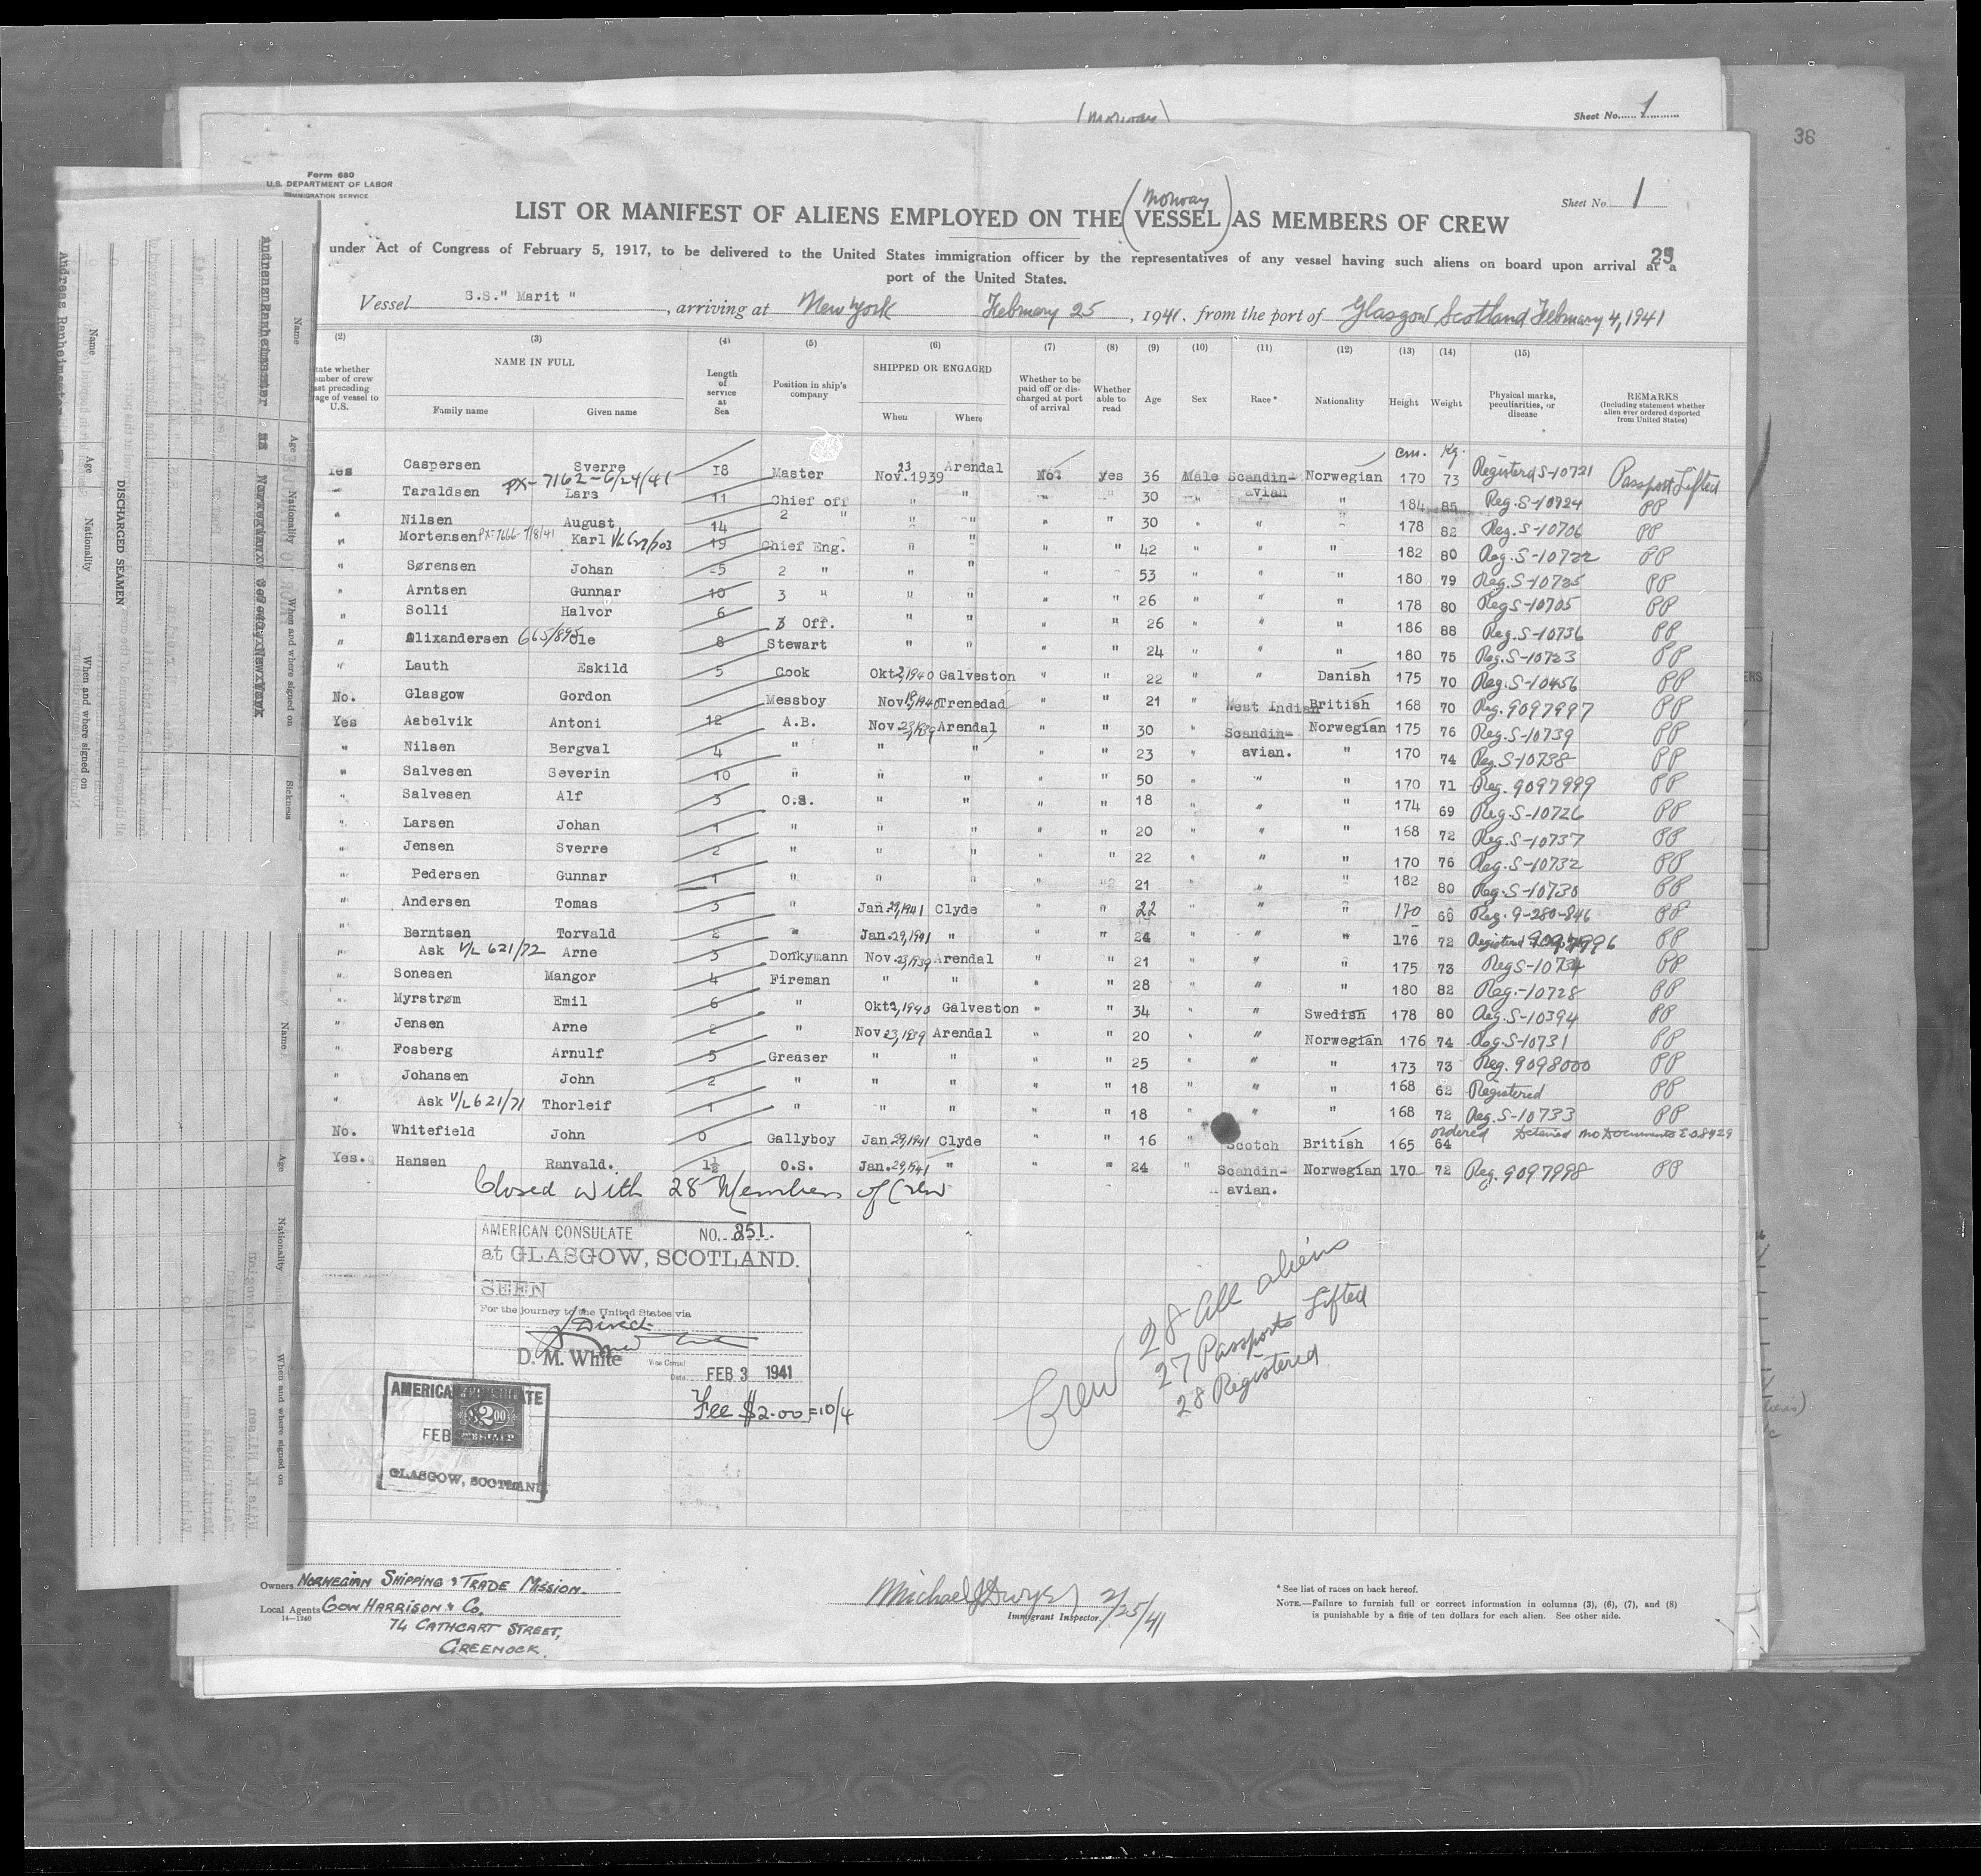 (Norway)
Sheet No. 1
36
Form 680
U.S. DEPARTMENT OF LABOR
IMMIGRATION SERVICE
Sheet No. 1
(Norway)
LIST OR MANIFEST OF ALIENS EMPLOYED ON THE VESSEL AS MEMBERS OF CREW
under Act of Congress of February 5, 1917, to be delivered to the United States immigration officer by the representatives of any vessel having such aliens on board upon arrival at a
port of the United States.
Vessel S.S." Marit ", arriving at New York February 25, 1941. from the port of Glasgow Scotland February 4, 1941
(2) (3) (4) (5) (6) (7) (8) (9) (10) (11) (12) (13) (14) (15)
NAME IN FULL Length of service at Sea Position in ship's company SHIPPED OR ENGAGED Whether to be paid off or discharged at port of arrival Whether able to read Age Sex Race * Nationality Height Weight Physical marks, peculiarities, or disease REMARKS (Including statement whether alien ever ordered deported from United States)
Family name Given name When Where
cm. Kg.
Yes Caspersen Sverre 18 Master Nov. 23 1939 Arendal No. yes 36 Male Scandin-avian Norwegian 170 73 Registerd S-10721 Passport Lifted
PX-7162-6/24/41
" Taraldsen Lars 11 Chief off " " " " 30 " " 184 85 Reg. S-10724 PP
" Nilsen August 14 2 " " " " " 30 " " " 178 82 Reg. S-10706 PP
" Mortensen PX-7666-7/8/41 Karl 19 Chief Eng. " " " " 42 " " " 182 80 Reg. S-10722 PP
" Sørensen Johan 5 2 " " " " 53 " " " 180 79 Reg. S-10725 PP
" Arntsen Gunnar 10 3 " " " " " 26 " " " 178 80 Reg S-10705 PP
" Solli Halvor 6 3 Off. " " " " 26 " " " 186 88 Reg. S-10736 PP
" Alixandersen 665/895 Ole 8 Stewart " " " " 24 " " " 180 75 Reg. S-10723 PP
" Lauth Eskild 5 Cook Okt 2, 1940 Galveston " " 22 " " Danish 175 70 Reg. S-10456 PP
No. Glasgow Gordon Messboy Nov 18, 1940 Trenedad " " 21 " West Indian British 168 70 Reg. 9097997 PP
Yes Aabelvik Antoni 12 A.B. Nov. 23, 1939 Arendal " " 30 " Scandin- Norwegian 175 76 Reg. S-10739 PP
" Nilsen Bergval 4 " " " " " 23 " avian. " 170 74 Reg. S-10738 PP
" Salvesen Severin 10 " " " " " 50 " " " 170 71 Reg. 9097999 PP
" Salvesen Alf 3 O.S. " " " " 18 " " " 174 69 Reg S-10726 PP
" Larsen Johan 1 " " " " " 20 " " " 168 72 Reg. S-10737 PP
" Jensen Sverre 2 " " " " " 22 " " " 170 76 Reg. S-10732 PP
" Pedersen Gunnar 1 " " " " " 21 " " " 182 80 Reg. S-10730 PP
" Andersen Tomas 3 " Jan 29, 1941 Clyde " " 22 " " " 170 66 Reg. 9-280-846 PP
" Berntsen Torvald 2 " Jan. 29, 1941 " " " 24 " " " 176 72 Registerd PP
" Ask V/L 621/72 Arne 3 Donkymann Nov. 23, 1939 Arendal " " 21 " " " 175 73 Reg S-10734 PP
" Sonesen Mangor 4 Fireman " " " " 28 " " " 180 82 Reg.-10728 PP
" Myrstrøm Emil 6 " Okt 2, 1940 Galveston " " 34 " " Swedish 178 80 Reg. S-10394 PP
" Jensen Arne 2 " Nov 23, 1939 Arendal " " 20 " " Norwegian 176 74 Reg. S-10731 PP
" Fosberg Arnulf 5 Greaser " " " " 25 " " " 173 73 Reg. 9098000 PP
" Johansen John 2 " " " " " 18 " " " 168 62 Registered PP
" Ask V/L 621/71 Thorleif 1 " " " " " 18 " " " 168 72 Reg. S-10733 PP
No. Whitefield John 0 Gallyboy Jan 29, 1941 Clyde " " 16 " Scotch British 165 64 ordered Detained no Documents
Yes. Hansen Ranvald. 1½ O.S. Jan. 29, 1941 " " " 24 " Scandin-avian. Norwegian 170 72 Reg. 9097998 PP
Closed with 28 Members of Crew
AMERICAN CONSULATE NO. 251.
at GLASGOW, SCOTLAND.
SEEN
For the journey to the United States via
Direct
D. M. White Vice Consul
Date FEB 3 1941
Fee $2.00 = 10/4
AMERICAN CONSULATE
$2.00
FEB
GLASGOW, SCOTLAND
Crew 28 All aliens
27 Passports Lifted
28 Registered
Owners NORWEGIAN SHIPPING & TRADE MISSION.
Local Agents GOW HARRISON & CO.
14-1240
74 CATHCART STREET,
GREENOCK.
Michael J Dwyer 2/25/41
Immigrant Inspector.
* See list of races on back hereof.
NOTE.—Failure to furnish full or correct information in columns (3), (6), (7), and (8)
is punishable by a fine of ten dollars for each alien. See other side.
DISCHARGED SEAMEN
Name Age Nationality When and where signed on